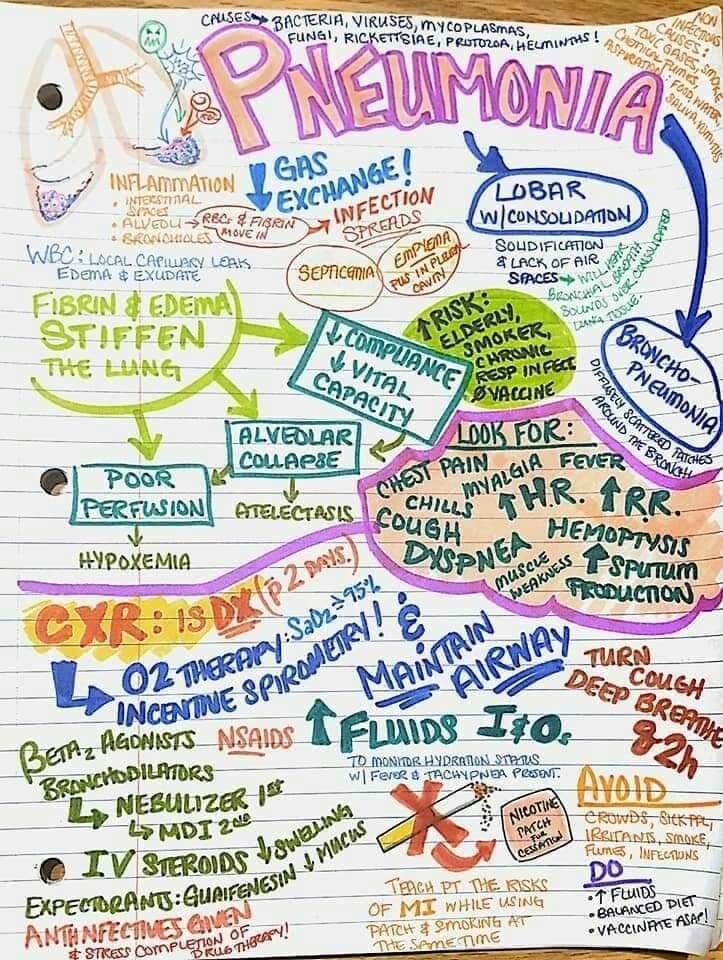 CAUSES → BACTERIA, VIRUSES, MYCOPLASMAS,
FUNGI, RICKETTSIAE, PROTOZOA, HELMINTHS!
NON
INFECTIOUS
CAUSES:
TOXIC GASES,
CHEMICAL FUMES,
ASPIRATION: FOOD, WATER,
SALIVA, VOMITUS
PNEUMONIA
↓ GAS
EXCHANGE!
INFLAMMATION
• INTERSTITIAL
SPACES
• ALVEOLI →
• BRONCHIOLES
RBCs & FIBRIN
MOVE IN
→ INFECTION
SPREADS
SEPTICEMIA
EMPYEMA
PUS IN PLEURAL
CAVITY
WBC: LOCAL CAPILLARY LEAK,
EDEMA & EXUDATE
LOBAR
W/CONSOLIDATION
SOLIDIFICATION
& LACK OF AIR
SPACES → WILL HEAR
BRONCHIAL BREATH
SOUNDS OVER CONSOLIDATED
LUNG TISSUE.
BRONCHO-
PNEUMONIA
DIFFUSELY SCATTERED PATCHES
AROUND THE BRONCHI
FIBRIN & EDEMA
STIFFEN
THE LUNG
↓ COMPLIANCE
↓ VITAL
CAPACITY
↑ RISK:
ELDERLY,
SMOKER,
CHRONIC
RESP INFECT
Ø VACCINE
ALVEOLAR
COLLAPSE
ATELECTASIS
POOR
PERFUSION
HYPOXEMIA
LOOK FOR:
CHEST PAIN
MYALGIA
FEVER
CHILLS
↑ H.R.
↑ R.R.
COUGH
HEMOPTYSIS
DYSPNEA
MUSCLE
WEAKNESS
↑ SPUTUM
PRODUCTION
CXR: IS DX (p̄ 2 DAYS.)
O2 THERAPY: SaO2 ≥ 95%
INCENTIVE SPIROMETRY! &
MAINTAIN
AIRWAY
TURN
COUGH
DEEP BREATHE
q 2h
↑ FLUIDS I & Os
TO MONITOR HYDRATION STATUS
W/ FEVER & TACHYPNEA PRESENT.
BETA2 AGONISTS
NSAIDS
BRONCHODILATORS
NEBULIZER 1st
MDI 2nd
IV STEROIDS ↓ SWELLING
↓ MUCUS
EXPECTORANTS: GUAIFENESIN
ANTIINFECTIVES GIVEN
& STRESS COMPLETION OF
DRUG THERAPY!
NICOTINE
PATCH
FOR
CESSATION
TEACH PT THE RISKS
OF MI WHILE USING
PATCH & SMOKING AT
THE SAME TIME
AVOID
CROWDS, SICK PPL,
IRRITANTS, SMOKE,
FUMES, INFECTIONS
DO
• ↑ FLUIDS
• BALANCED DIET
• VACCINATE ASAP!